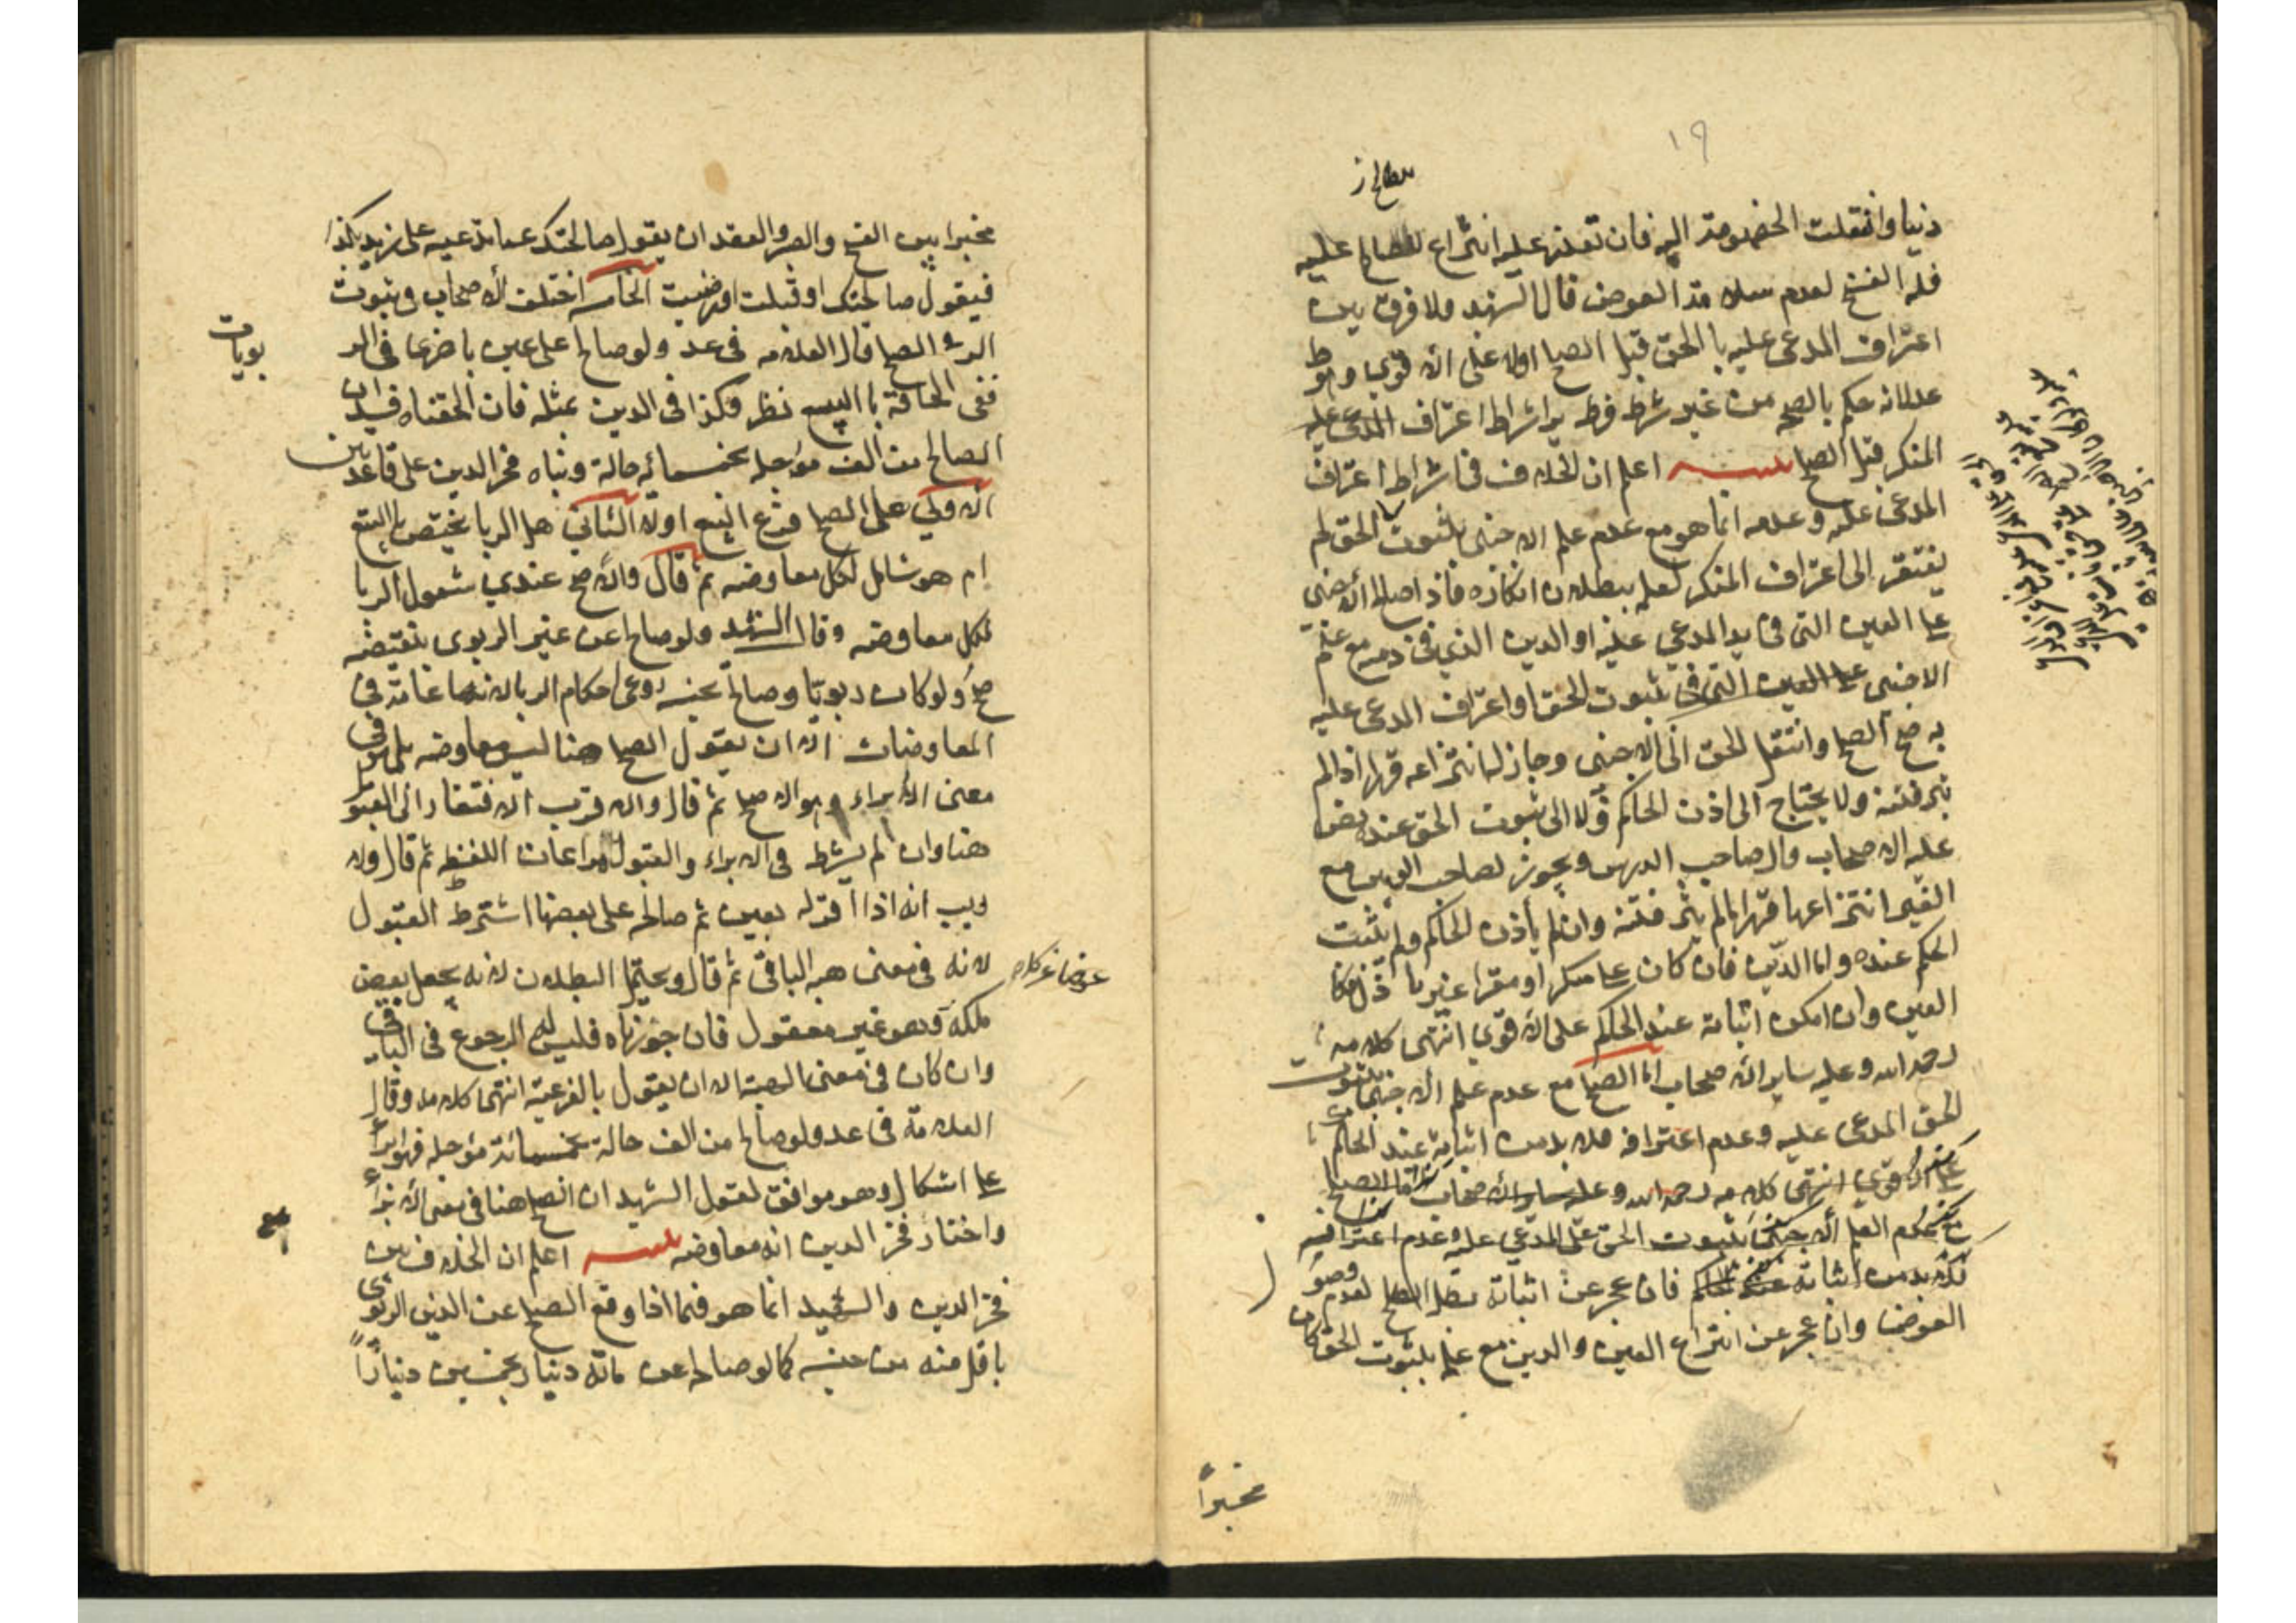 ١٩
دينا وانتقلت الخصومة اليه فان تعذر عليه انتزاع المصالح عليه
فله الفسخ لعدم سلامة العوض قال الشهيد ولا فرق بين
اعتراف المدعى عليه بالحق قبل الصلح اولا على الاقوى وهو ط
علانه حكم بالصحة من غير شرط فرط اشتراط اعتراف المدعى عليه
المنكر قبل الصلح تنبيه اعلم ان الخلاف في اشتراط اعتراف
المدعى عليه وعدمه انما هو مع عدم علم الاجنبي بثبوت الحق لم
يفتقر الى اعتراف المنكر لعلمه ببطلان انكاره فاذا صالح الاجنبي
على العين التي في يد المدعى عليه او الدين الذي في ذمته مع علم
الاجنبي على العين التي في ثبوت الحق او اعتراف المدعى عليه
به صح الصلح وانتقل الحق الى الاجنبي وجاز له انتزاعه قهرا اذا لم
يثر فتنة ولا يحتاج الى اذن الحاكم ولا الى ثبوت الحق عنده نص
عليه الاصحاب قال صاحب الدروس ويجوز لصاحب العين مع
الغير انتزاعها قهرا ما لم يثر فتنة وان لم يأذن الحاكم ولم يثبت
الحكم عنده واما الدين فان كان على منكر او مقر غير باذل فكا
العين وان امكن اثباته عند الحاكم على الاقوى انتهى كلامه
رحمه الله وعليه ساير الاصحاب اما الصلح مع عدم علم الاجنبي بثبوت
الحق المدعى عليه وعدم اعترافه فلا بد من اثباته عند الحاكم
على الاقوى انتهى كلامه رحمه الله وعليه ساير الاصحاب اما الصلح
مع عدم العلم الاجنبي بثبوت الحق على المدعى عليه وعدم اعترافه
فلا بد من اثباته عند الحاكم فان عجز عن اثباته بطل الصلح لعدم وصو
العوض وان عجز عن انتزاع العين والدين مع علمه بثبوت الحق كان
مخيراً
مخيرا بين الفسخ والصبر والعقد ان يقول صالحتك عما تدعيه على زيد بكذا
فيقول صالحتك او قبلت او رضيت الخامس اختلف الاصحاب في ثبوت
الربا في الصلح قال العلامه في عد ولو صالح على عين باخرى في الر
بويات
ففي الحاقه بالبيع نظر وكذا في الدين بمثله فان الحقناه فسد ان
الصالح من الف مؤجله بخمسمائه حالة وبناه فخر الدين على قاعدتين
الاولى على الصلح فرع البيع اولا الثاني هل الربا يختص بالبيع
ام هو شامل لكل معاوضه ثم قال والاصح عندي شمول الربا
لكل معاوضه وقال الشهيد ولو صالح عن غير الربوي بنقيضه
صح ولو كان ربويا وصالح بجنسه روعي احكام الربا لانها عامة في
المعاوضات الا ان يقول الصلح هنا ليس معاوضه بل هو في
معنى الابراء وهو الاصح ثم قال والاقرب الافتقار الى القبول
هنا وان لم يشرط في الابراء والقبول مراعات اللفظ ثم قال ولا
ريب انه اذا اقر له بعين ثم صالحه على بعضها اشترط القبول
لانه في معنى هبه الباقي ثم قال ويحتمل البطلان لانه يجعل بعض
ملكه وهو غير معقول فان جوزناه فليس له الرجوع في الباقي
وان كان في معنى الهبة الا ان يقول بالفرعية انتهى كلامه وقال
العلامة في عد ولو صالح من الف حالة بخمسمائة مؤجله فهو ابراء
على اشكال وهو موافق لقول الشهيد ان الصلح هنا في معنى الابراء
واختار فخر الدين انه معاوضه تنبيه اعلم ان الخلاف بين
فخر الدين والشهيد انما هو فيما اذا وقع الصلح عن الدين الربوي
باقل منه من جنسه كما لو صالحه عن مائه دينار بخمسين ديناراً